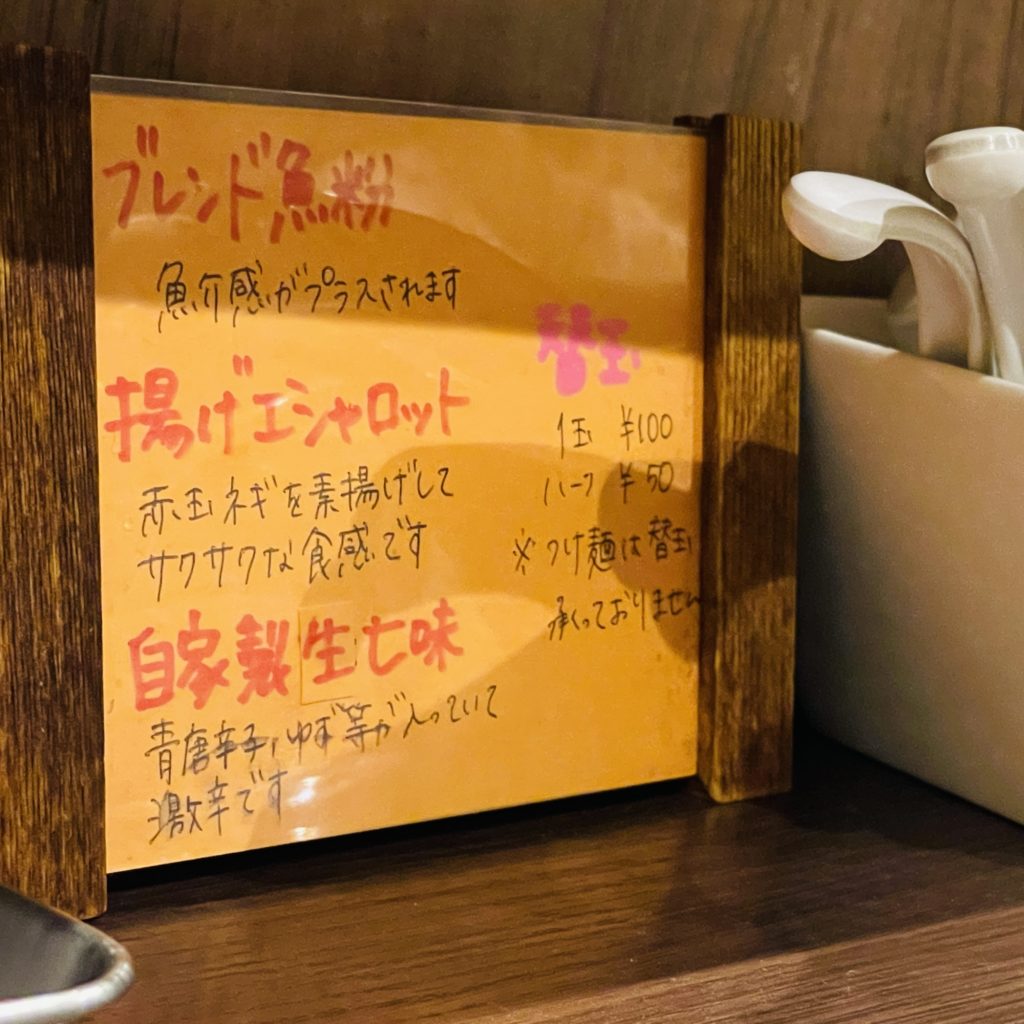 ブレンド魚粉
魚介感がプラスされます
揚げエシャロット
赤玉ネギを素揚げして
サクサクな食感です
自家製生七味
青唐辛子、ゆず等が入っていて
激辛です
替玉
1玉 ¥100
ハーフ ¥50
※つけ麺は替玉
承っておりません